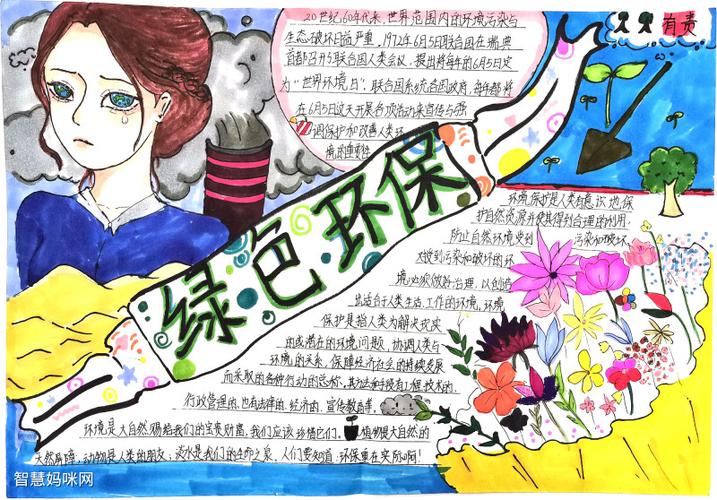 20世纪60年代末,世界范围内的环境污染与
生态破坏日益严重,1972年6月5日联合国在瑞典
首都召开了联合国人类会议,提出将每年的6月5日定
为“世界环境日”。联合国系统各国政府,每年都将
在6月5日这天开展各项活动来宣传与强
调保护和改善人类环
境的重要性
人人有责
绿色环保
环境保护是人类有意识地保
护自然资源并使其得到合理的利用,
防止自然环境受到污染和破坏,
对受到污染和破坏的环
境必须做好治理,以创造
出适合于人类生活、工作的环境,环境
保护是指人类为解决现实
的或潜在的环境问题,协调人类与
环境的关系,保障经济社会的持续发展
而采取的各种行动的总称。其方法和手段有工程技术的、
行政管理的,也有法律的、经济的、宣传教育等。
环境是大自然赐给我们的宝贵财富,我们应该珍惜它们。植物是大自然的
天然屏障,动物是人类的朋友;淡水是我们的生命之泉,人们要知道:环保重在实际行动啊!
智慧妈咪网